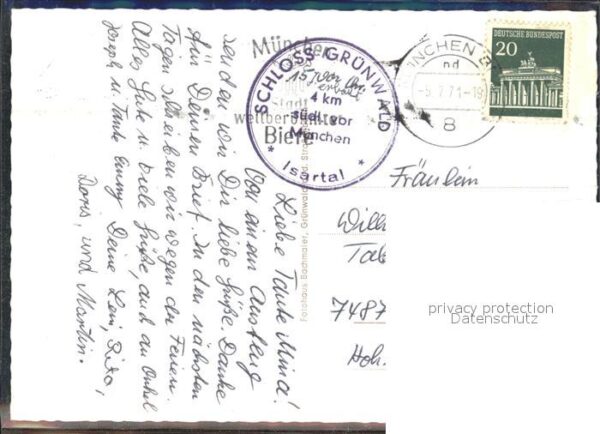 Liebe Tante Mina!
Von einem Ausflug
senden wir Dir liebe Grüße. Danke
für Deinen Brief. In den nächsten
Tagen schreiben wir wegen der Ferien.
Alles Gute u. viele Grüße, auch an Onkel
Joseph u. Tante Emmy Deine
Doris, und Martin.
Fotohaus Bachmaier, Grünwald
München
Stadt
weltberühmter
Biere
SCHLOSS GRÜNWALD
4 km
südl. vor
München
* Isartal *
MÜNCHEN
nd
-5.7.71-19
8
DEUTSCHE BUNDESPOST
20
Fräulein
7487
Hoh.
privacy protection
Datenschutz